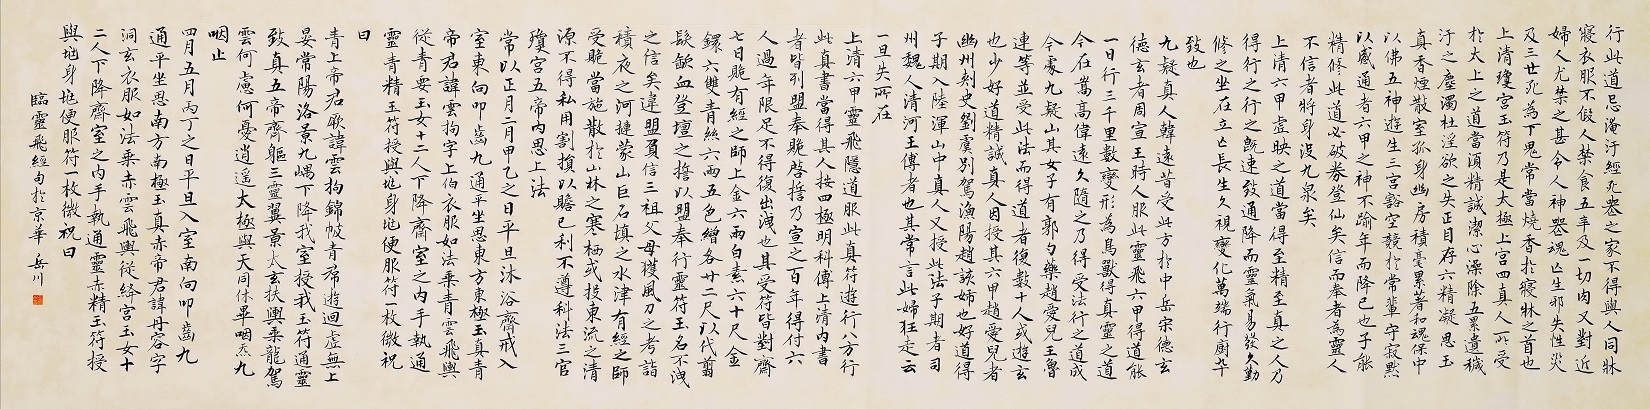 行此道忌淹汙經死喪之家不得與人同牀
寢衣服不假人禁食五辛及一切肉又對近
婦人尤禁之甚令人神喪魂亡生邪失性災
及三世死為下鬼常當燒香於寢牀之首也
上清瓊宮玉符乃是太極上宮四真人所受
於太上之道當須精誠潔心澡除五累遺穢
汙之塵濁杜淫欲之失正目存六精凝思玉
真香煙散室孤身幽房積毫累著和魂保中
以佛五神遊生三宮豁空競於常輩守寂默
以感通者六甲之神不踰年而降已也子能
精修此道必破券登仙矣信而奉者為靈人
不信者將身沒九泉矣
上清六甲虛映之道當得至精至真之人乃
得行之行之既速致通降而靈氣易發久勤
修之坐在立亡長生久視變化萬端行廚卒
致也
九疑真人韓遠昔受此方於中岳宗德玄
德玄者周宣王時人服此靈飛六甲得道能
一日行三千里數變形為鳥獸得真靈之道
今在嵩高偉遠久隨之乃得受法行之道成
今處九疑山其女子有郭勺藥趙愛兒王魯
連等並受此法而得道者復數十人或遊玄
也少好道精誠真人因授其六甲趙愛兒者
幽州刺史劉虞別駕漁陽趙該姊也好道得
子期入陸渾山中真人又授此法子期者司
州魏人清河王傅者也其常言此婦狂走云
一旦失所在
上清六甲靈飛隱道服此真符遊行八方行
此真書當得其人按四極明科傳上清內書
者皆列盟奉貺啓誓乃宣之百年得付六
人過年限足不得復出洩也其受符皆對齋
七日貺有經之師上金六兩白素六十尺金
鐶六雙青絲六兩五色繒各廿二尺以代翦
髮歃血登壇之誓以盟奉行靈符玉名不洩
之信矣違盟負信三祖父母獲風刀之考詣
積夜之河揵蒙山巨石填之水津有經之師
受貺當施散於山林之寒栖或投東流之清
源不得私用割損以贍己利不遵科法三官
瓊宮五帝內思上法
常以正月二月甲乙之日平旦沐浴齊戒入
室東向叩齒九通平坐思東方東極玉真青
帝君諱雲拘字上伯衣服如法乘青雲飛輿
從青要玉女十二人下降齋室之內手執通
靈青精玉符授與兆身兆便服符一枚微祝
曰
青上帝君厥諱雲拘錦帔青帬遊迴虛無上
晏常陽洛景九嵎下降我室授我玉符通靈
致真五帝齊軀三靈翼景太玄扶輿乘龍駕
雲何慮何憂逍遙太極與天同休畢咽炁九
咽止
四月五月丙丁之日平旦入室南向叩齒九
通平坐思南方南極玉真赤帝君諱丹容字
洞玄衣服如法乘赤雲飛輿從絳宮玉女十
二人下降齋室之內手執通靈赤精玉符授
與兆身兆便服符一枚微祝曰
臨靈飛經句於京華 岳川